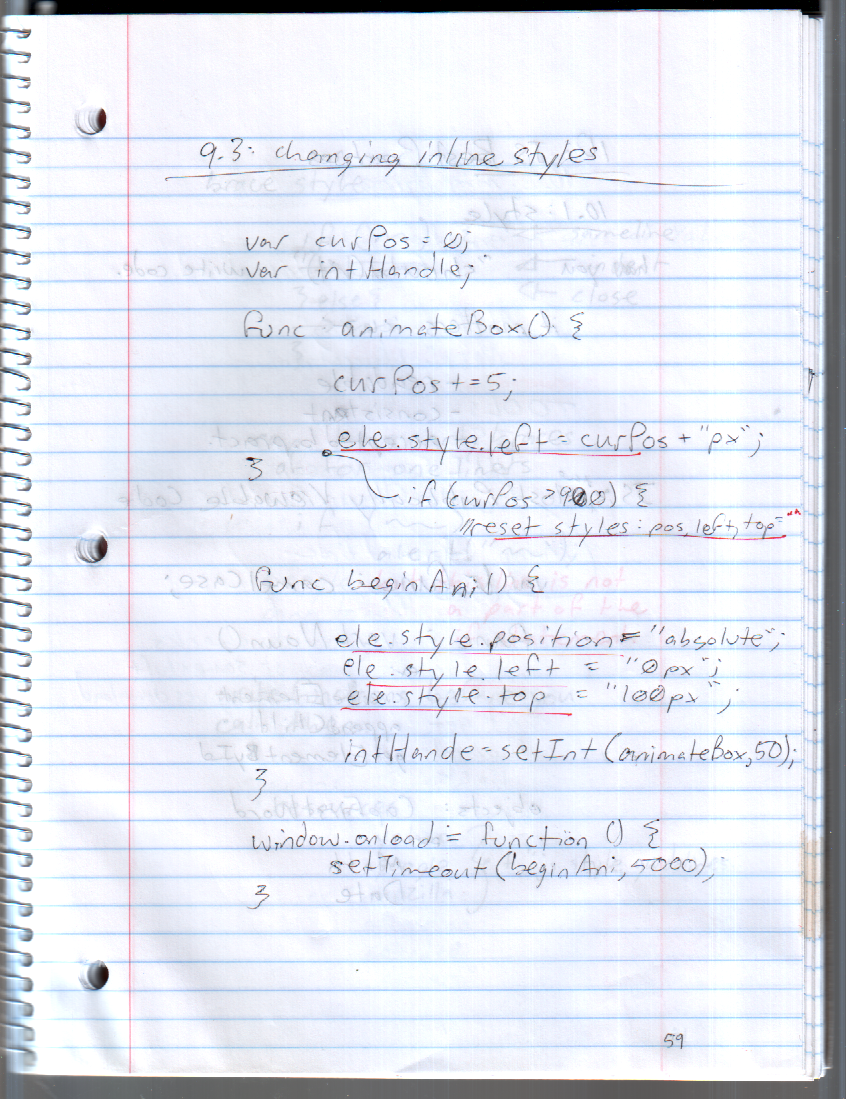 9.3: changing inline styles
var curPos = 0;
var intHandle;
func animateBox() {
curPos += 5;
ele.style.left = curPos + "px";
}
if (curPos > 900) {
//reset styles: pos, left, top = ""
func beginAni() {
ele.style.position = "absolute";
ele.style.left = "0px";
ele.style.top = "100px";
intHande = setInt (animateBox, 50);
}
window.onload = function () {
setTimeout (beginAni, 5000);
}
59